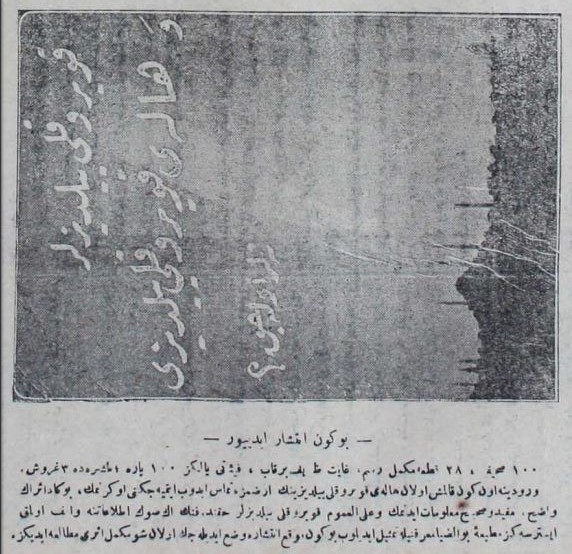 قويروقلى ييلديزلر
و هالەى قويروقلى ييلديزى
— بوكون انتشار ايدييور —
١٠٠ صحيفه ، ٢٨ قطعه مكمل رسم، غايت ظريف بر قاب ، فيئتى يالكز ١٠٠ پاره ؛ طشره ده ٣ غروش .
ورودينه اون كون قالمش اولان هاله ى قويروقلى ييلديزينك ارضمزه تماس ايدوب ايتميه جكنى اوكرنمك، بوكا دائر اك
واضح، مفيد و صحيح معلومات ايدنمك و على العموم قويروقلى ييلديزلر حقنده فنك اك صوك اطلاعاتنه واقف اولمق
ايسترسه كز مطبعۀ ابوالضيا معرفتيله تمثيل ايديلوب بوكون موقع انتشاره وضع ايديله جك اولان شو مكمل اثرى مطالعه ايديكز.